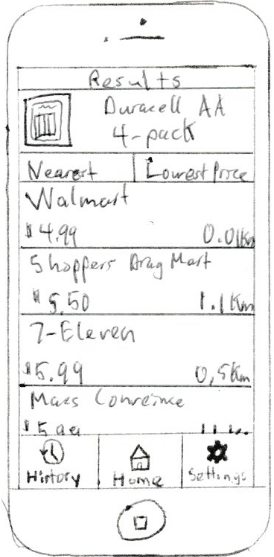 Results
Duracell AA
4-pack
Nearest Lowest Price
Walmart
$4.99 0.01Km
Shoppers Drug Mart
$5.50 1.1Km
7-Eleven
$5.99 0,5Km
Macs
History Home Settings